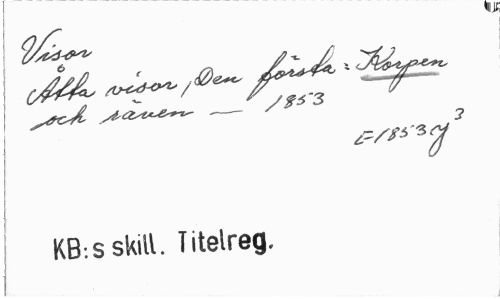 Visor
Åtta visor, Den första: Korpen
och räven — 1853
E1853y³
KB:s skill. Titelreg.